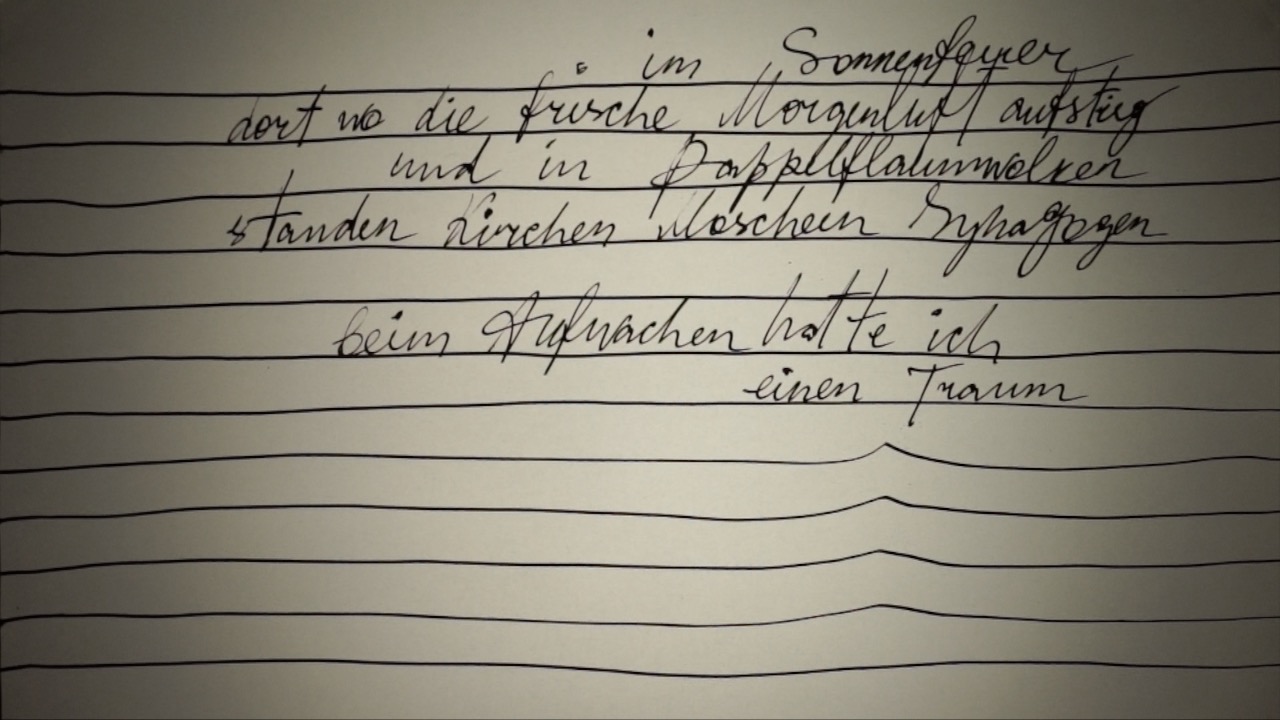 im Sonnenfeuer
dort wo die frische Morgenluft aufstieg
und in Pappelflaumwolken
standen Kirchen Moscheen Synagogen
beim Aufwachen hatte ich
einen Traum